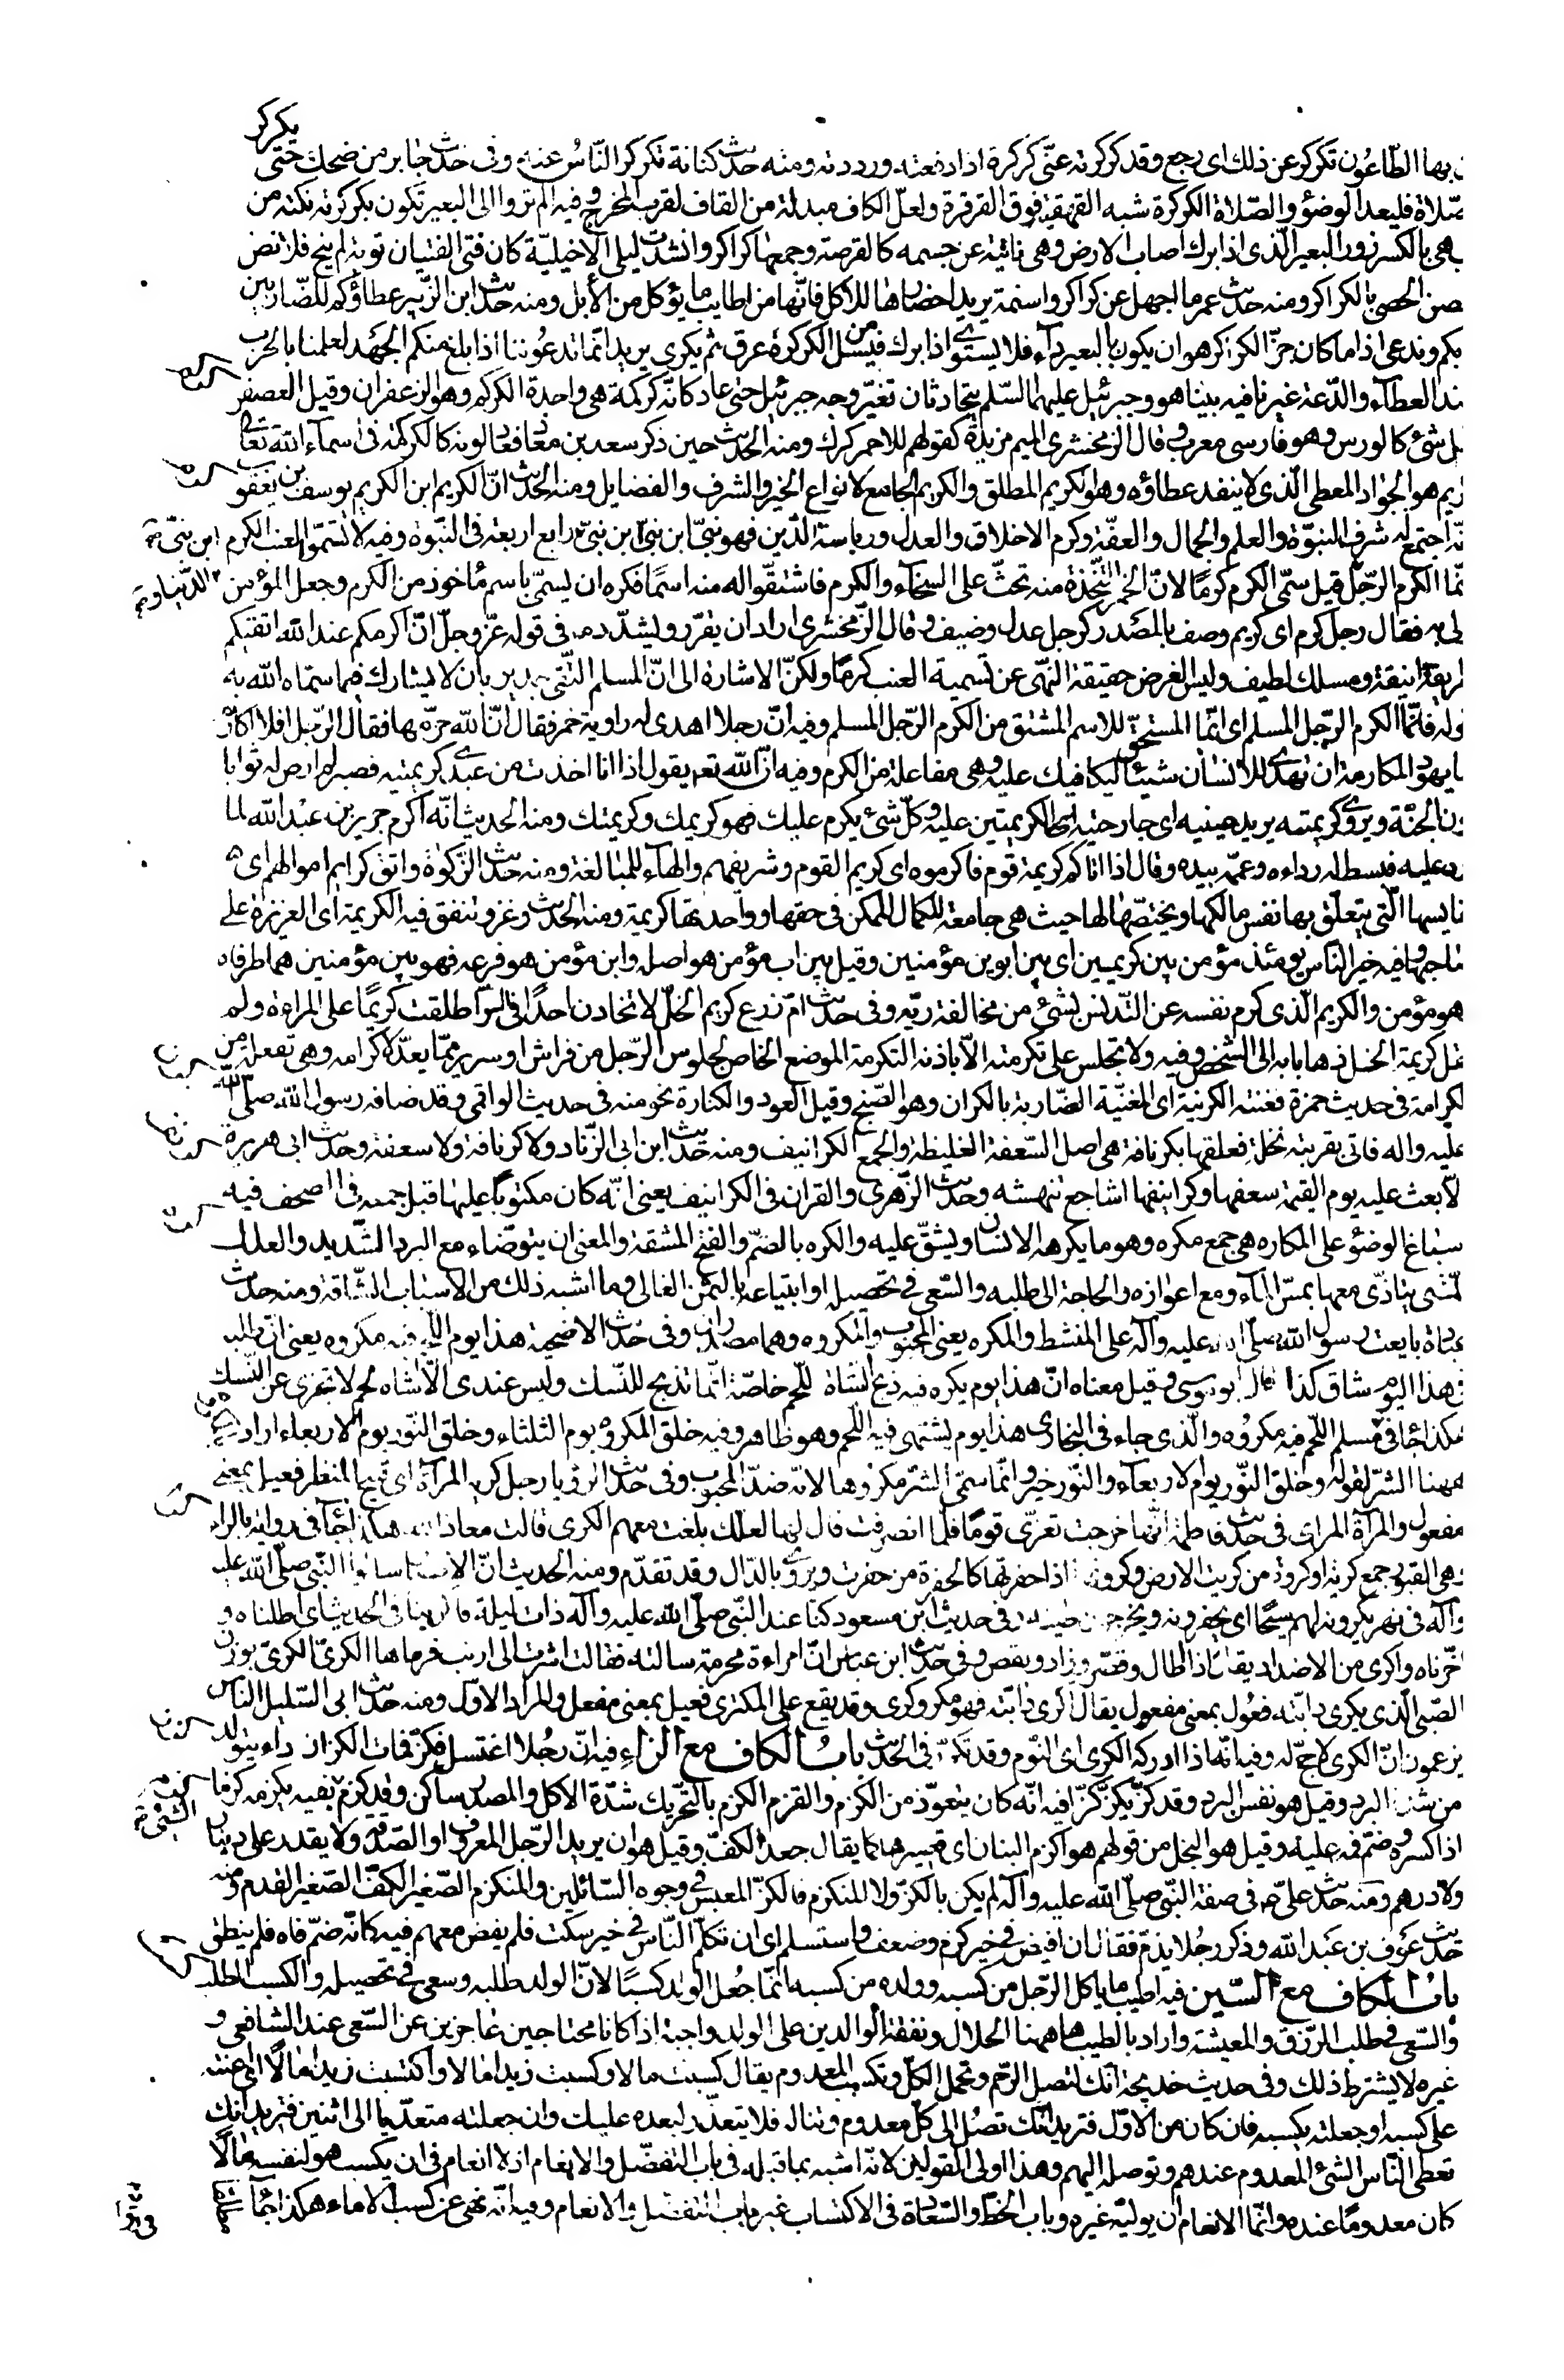 يكركر
بها الطّاعُون تكركر عن ذلك اى رجع وقد كركرته عنّى كركرة اذا دفعته ورددته ومنه حديث كنانة تكركر النّاسُ عنه وفى حديث جابر من ضحك حتى
صّلاة فليعد الوضؤ والصّلاة الكركرة شبه القهقهة فوق القرقرة ولعلّ الكاف مبدلة من القاف لقرب المخرج وفيه الم تروا الى البعير تكون بكركرته نكتة من
هى بالكسر زور البعير الّذى اذا برك اصاب الارض وهى ناتئة عن جسمه كالقرصة وجمعها كراكر وانشدت ليلى الاخيليّة كان فتى الفتيان توبة لم ينخ قلائص
الحصى بالكراكر ومنه حديث عمر ما اجهل عن كراكر واسنمة يريد احضارها للاكل فانّها من اطايب ما يؤكل من الأبل ومنه حديث ابن الزّبير عطاؤكم للضّاربين
بكم وندعى اذا ما كان حزّ الكراكر هو ان يكون بالبعير داء فلا يستوى اذا برك فيسل من الكركرة عرق ثم يكوى يريد انّما تدعوننا اذا بلغ منكم الجهد لعلمنا بالحرب
ند العطآء والدّعة غيرنا فيه بينا هو وجبرئيل عليهما السّلم يتحادثان تغيّر وجه جبرئيل حتى عاد كانّه كركمة هى واحدة الكركم وهو الزعفران وقيل العصفر
شئ كالورس وهو فارسى معرب قال الزمخشرى الميم مزيدة كقولهم للاحمر كرك ومنه الحديث حين ذكر سعد بن معاذ فعاد لونه كالكركمة فى اسمآء الله تعالى
هو الجواد المعطى الّذى لا ينفد عطاؤه وهو الكريم المطلق والكريم الجامع لانواع الخير والشرف والفضايل ومنه الحديث انّ الكريم ابن الكريم يوسف بن يعقوب
اجتمع له شرف النبوّة والعلم والجمال والعفّة وكرم الاخلاق والعدل ورياسة الدّين فهو نبىّ ابن نبىّ ابن نبىّ رابع اربعة فى النّبوة وفيه لا تسمّوا العنب الكرم ابن نبىّ
نّما الكرم الرّجل قيل سمّى الكرم كرمًا لانّ الخمر المتّخذة منه تحثّ على السخآء والكرم فاشتقّوا له منه اسمًا فكره ان يسمّى باسم مأخوذ من الكرم وجعل المؤمن والدّنيا
لى به فقال رجل كرم اى كريم وصف بالمصدر كرجل عدل وضيف وقال الزّمخشرى اراد ان يقرّر ويشدّد فى قوله عزّ وجلّ انّ اكرمكم عند الله اتقيكم
انيقة ومسلك لطيف وليس الغرض حقيقة النّهى عن تسمية العنب كرمًا ولكنّ الاشارة الى انّ المسلم التّقى جدير بان لا يشارك فيما سمّاه الله به
وله فانّما الكرم الرّجل المسلم اى انّما المستحقّ للاسم المشتق من الكرم الرّجل المسلم وفيه انّ رجلا اهدى له راوية خمر فقال انّ الله حرّمها فقال الرّجل افلا اكارم
بها يهود المكارمة ان تهدى للانسان شيئا ليكافيك عليه وهى مفاعلة من الكرم وفيه انّ الله تعم يقول اذا انا اخذت من عبدى كريمتيه فصبر لم ارض له ثوابا
دون الجنّة ويروى كريمته يريد عينيه اى جارحتيه الكريمتين عليه وكلّ شئ يكرم عليك فهو كريمك وكريمتك ومنه الحديث انّه اكرم جرير بن عبد الله لما
عليه فبسط له رداءه وعمّمه بيده وقال اذا اتاكم كريمة قوم فاكرموه اى كريم القوم وشريفهم والهآء للمبالغة ومنه حديث الزّكوة واتق كرايم اموالهم اى
نفايسها الّتى يتعلّق بها نفس مالكها ويختصّها لها حيث هى جامعة للكمال الممكن فى حقها وواحدتها كريمة ومنه الحديث وغزو تنفق فيه الكريمة اى العزيزة على
صاحبها وفيه خير الناس يومئذ مؤمن بين كريمين اى بين ابوين مؤمنين وقيل بين اب مؤمن هو اصله وابن مؤمن هو فرعه فهو بين مؤمنين هما طرفاه
هو مؤمن والكريم الّذى كرم نفسه عن التّدنّس بشئ من مخالفة ربّه وفى حديث امّ زرع كريم الخلّ لا تخادن احدًا فى السّرّ اطلقت كريمًا على المراءة ولم
تقل كريمة الخلّ ذهابا به الى الشخص وفيه ولا تجلس على تكرمته الاّ باذنه التكرمة الموضع الخاص لجلوس الرّجل من فراش او سرير ممّا يعدّ لاكرامه وهى تفعلة من
الكرامة فى حديث حمزة فغنته الكرينة اى المغنّية الضّاربة بالكران وهو الصّنج وقيل العود والكنارة نحو منه فى حديث الواقمى وقد ضافه رسول الله صلّى الله
عليه واله فاتى بقربته نخلة فعلقها بكرنافة هى اصل السّعفة الغليظة والجمع الكرانيف ومنه حديث ابن ابى الزّناد ولا كرنافة ولا سعفة وحديث ابى هريرة
الاّ بعث عليه يوم القيمة سعفها وكرانيفها اشاجع تنهشه وحديث الزّهرى والقران فى الكرانيف يعنى انّه كان مكتوبًا عليها قبل جمعه فى الصحف فيه
سباغ الوضؤ على المكاره هى جمع مكره وهو ما يكرهه الانسان ويشقّ عليه والكره بالضمّ والفتح المشقة والمعنى ان يتوضّاء مع البرد الشّديد والعلل
الّتى يتاذّى معها بمسّ المآء ومع اعوازه والحاجة الى طلبه والسّعى فى تحصيله او ابتياعه بالثّمن الغالى وما اشبه ذلك من الاسباب الشّاقّة ومنه حديث
عبادة بايعت رسول الله صلّى الله عليه وآله على المنشط والمكره يعنى المحبوب والمكروه وهما مصدران وفى حديث الاضحية هذا يوم اللّحم فيه مكروه يعنى انّ طلبه
فى هذا اليوم شاق كذا قال ابو موسى وقيل معناه انّ هذا يوم يكره فيه ذبح الشاة للّحم خاصّة انّما تذبح للنّسك وليس عندى الاّ شاة لحم لا تجزى عن النّسك
هكذا جاء فى مسلم اللّحم فيه مكروه والّذى جاء فى البخارى هذا يوم يشتهى فيه اللّحم وهو ظاهر وفيه خلق المكروه يوم الثلثاء وخلق النّور يوم الاربعاء اراد بالمكروه
ههنا الشرّ لقوله وخلق النّور يوم الاربعآء والنّور خير وانّما سمّى الشرّ مكروها لانّه ضدّ المحبوب وفى حديث الرؤيا رجل كريه المرآة اى قبيح المنظر فعيل بمعنى
مفعول والمرآة المراى فى حديث فاطمة انّها خرجت تعزّى قومًا فلمّا انصرفت قال لها لعلّك بلغت معهم الكرى قالت معاذ الله هكذا جآء فى رواية بالراء
وهى القبور جمع كرية او كروة من كريت الارض وكروتها اذا حفرتها كالحفرة من حفرت ويروى بالدّال وقد تقدّم ومنه الحديث انّ الانصار سالوا النّبى صلّى الله عليه
وآله فى نهر يكرونه لهم سيحًا اى يحفرونه ويخرجون طينه فى حديث ابن مسعود كنّا عند النّبى صلّى الله عليه وآله ذات ليلة فاكرينا فى الحديث اى اطلناه و
اخّرناه واكرى من الاضداد يقال اذا اطال وقصّر وزاد ونقص وفى حديث ابن عباس انّ امراءة محرمة سالته فقالت اشرت الى ارنب فرماها الكرىّ الكرىّ بوزن
الصّبى الّذى يكرى دابّته فعُول بمعنى مفعول يقال اكرى دابّته فهو مكر وكرى وقد يقع على المكترى فعيل بمعنى مفعل والمراد الاوّل ومنه حديث ابى السّليل النّاس
يزعمون انّ الكرى لا حجّ له وفيه انّه اذا ادركه الكرى اى النّوم وقد تكرّر فى الحديث بابُ الكاف مع الزاء فيه انّ رجُلا اغتسل فكزّ فمات الكزاز داء يتولّد
من شدّة البرد وقيل هو نفس البرد وقد كزّ يكزّ كزّا فيه انّه كان يتعوّذ من الكزم والقزم الكزم بالتّحريك شدّة الاكل والمصدر ساكن وقد كزم بفيه يكزمه كزما
اذا كسره وضمّ فمه عليه وقيل هو البخل من قولهم هو اكزم البنان اى قصيرها كما يقال جعد الكفّ وقيل هو ان يريد الرّجل المعروف او الصّدقة ولا يقدر على دينار
ولا درهم ومنه حديث علىّ فى صفة النّبى صلّى الله عليه وآله لم يكن بالكزّ ولا المنكزم فالكزّ المعبس فى وجوه السّائلين والمنكزم الصّغير الكفّ الصّغير القدم ومنه
حديث عَون بن عبد الله وذكر رجُلا يذمّ فقال ان افيض فى خير كزم وضعف واستسلم اى ان تكلّم النّاس فى خير سكت فلم يفض معهم فيه كانّه ضمّ فاه فلم ينطق
بابُ الكاف مع السّين فيه اطيب ما ياكل الرّجل من كسبه وولده من كسبه انّما جُعل الولد كسبًا لانّ الولد طلبه وسعى فى تحصيله والكسب الطلب
والسّعى فى طلب الرّزق والمعيشة واراد بالطيب ههنا الحلال ونفقة الوالدين على الولد واجبة اذا كانا محتاجين عاجزين عن السّعى عند الشّافعى و
غيره لا يشترط ذلك وفى حديث خديجة انّك لتصل الرّحم وتحمل الكلّ وتكسب المعدوم يقال كسبت مالا وكسبت زيدا مالا واكتسبت زيدا مالا اى اعنته
على كسبه او جعلته يكسبه فان كان من الاوّل فتريد انّك تصل الى كلّ معدوم وتنال فلا يتعذّر لبعده عليك وان جعلته متعدّيا الى اثنين فتريد انّك
تعطى النّاس الشئ المعدوم عندهم وتوصله اليهم وهذا اولى القولين لانّه اشبه بما قبله فى باب التفضّل والانعام اذ لا انعام فى ان يكسب هو لنفسه مالًا
كان معدومًا عنده وانّما الانعام ان يوليه غيره وباب الحظّ والسّعادة فى الاكتساب غير باب التفضّل والانعام وفيه انّه نهى عن كسب الاماء هكذا جآء